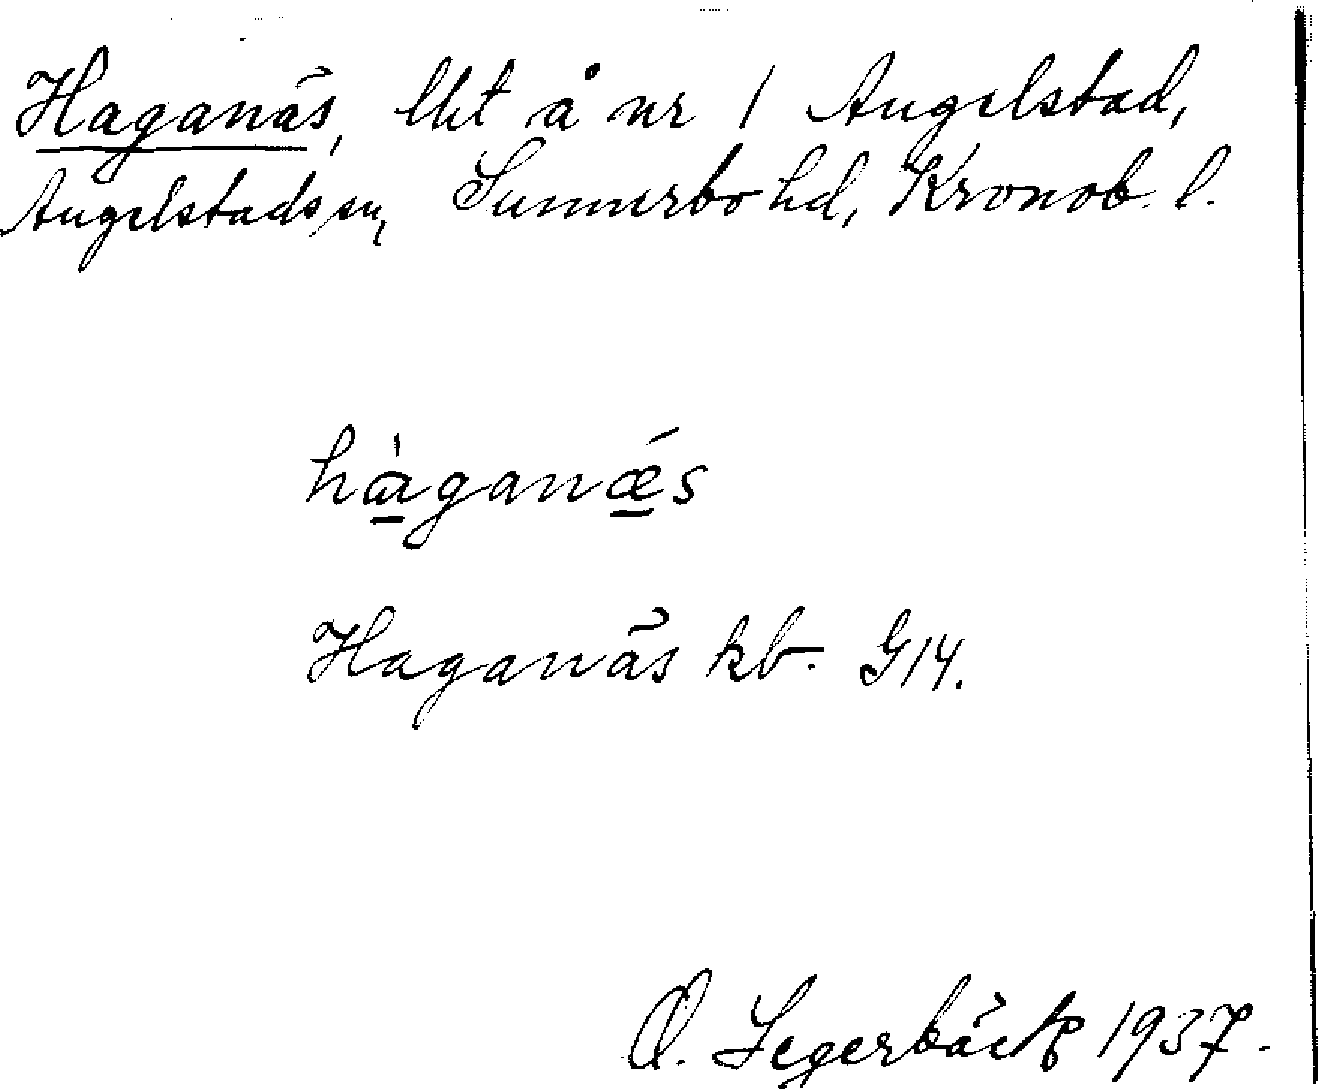 Haganäs, lht å nr 1 Angelstad,
Angelstads sn, Sunnerbo hd, Kronob. l.
hàganǽs
Haganäs kb. G14.
O. Segerbäck 1937.